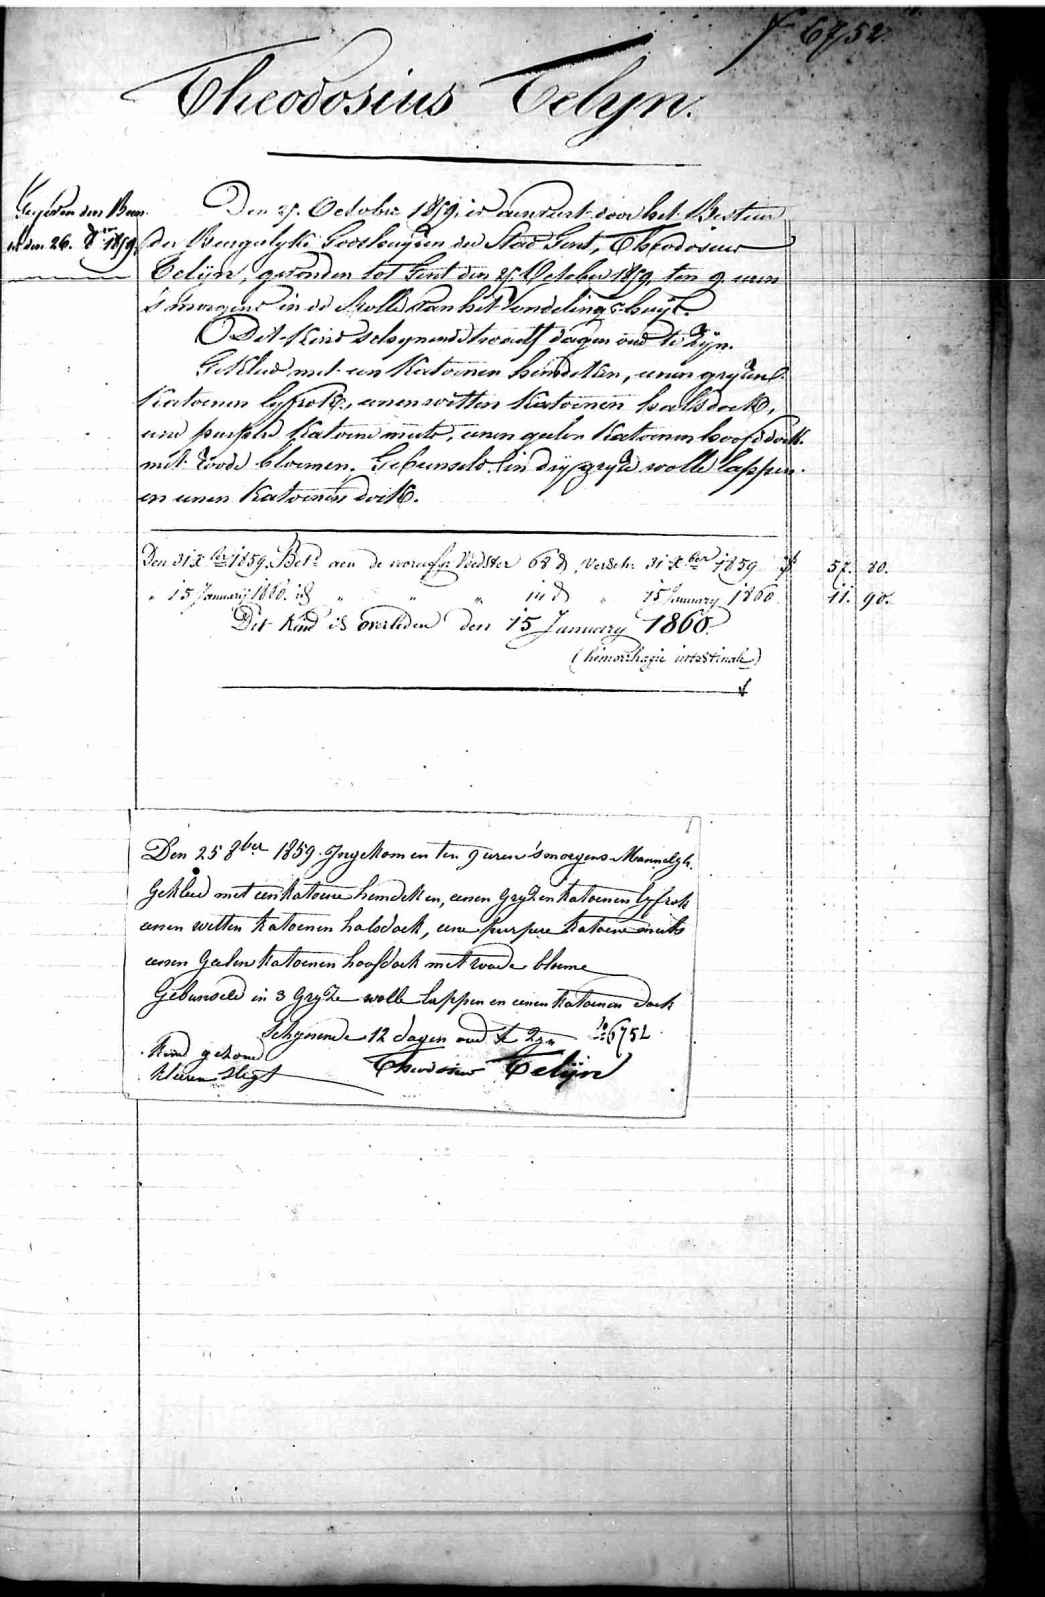 6752
Theodosius Celyn.
den 26. 8ber 1859.
Den 25. October 1859, is aenveert door het Bestuer
der Burgerlyke Godshuyzen der Stad Gent, Theodosius
Celijn, gevonden tot Gent den 25 October 1859, ten 9 uren
's morgens in de Rolle van het Vondelingshuys.
Dit Kind schynende twaelf dagen oud te zyn.
Gekleed met een Katoenen hemdeken, eenen gryzen
Katoenen lyfrok, eenen witten Katoenen halsdoek,
eene purpere Katoene muts, eenen geelen Katoenen hoofddoek
met roode bloemen. Gebunseld in dry gryze wolle lappen
en eenen Katoenen doek.
Den 31 Xber 1859. Betd aen de voedster 68 d Verschn 31 Xber 1859 57. 80.
" 15 January 1860. id " " " 14 d " 15 January 1860 11. 90.
Dit Kind is overleden den 15 January 1860.
(hémorrhagie intestinale)
Den 25 8ber 1859. Ingekomen ten 9 uren 's morgens Mannelyk.
Gekleed met een katoene hemdeken, eenen gryzen katoenen lyfrok
eenen witten katoenen halsdoek, eene purpere katoene muts
eenen geelen katoenen hoofdoek met roode bloeme
Gebunseld in 3 gryze wolle lappen en eenen katoenen doek
Schynende 12 dagen oud No 6752
Kind gezond
kleeren slegt
Theodosius Celijn